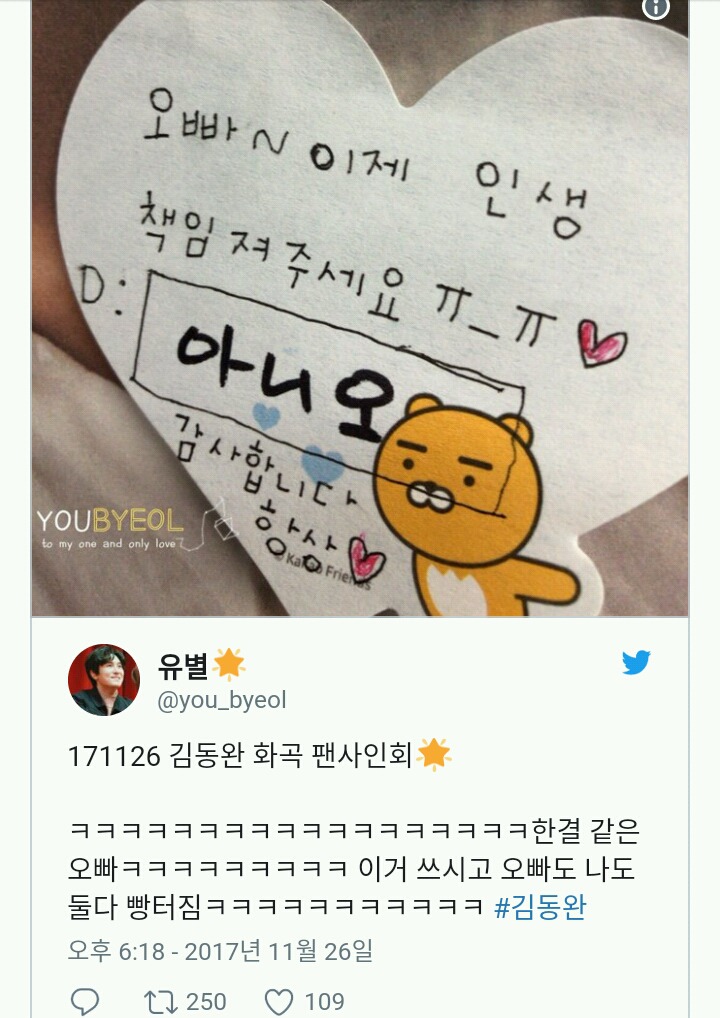 오빠~ 이제 인생
책임 져 주세요 ㅠ_ㅠ♥
D:
아니오
감사합니다
항상♥
© Kakao Friends
YOUBYEOL
to my one and only love
유별🌟
@you_byeol
171126 김동완 화곡 팬사인회🌟
ㅋㅋㅋㅋㅋㅋㅋㅋㅋㅋㅋㅋㅋㅋㅋㅋㅋㅋ한결 같은
오빠ㅋㅋㅋㅋㅋㅋㅋㅋㅋ 이거 쓰시고 오빠도 나도
둘다 빵터짐ㅋㅋㅋㅋㅋㅋㅋㅋㅋㅋㅋ #김동완
오후 6:18 - 2017년 11월 26일
250 109